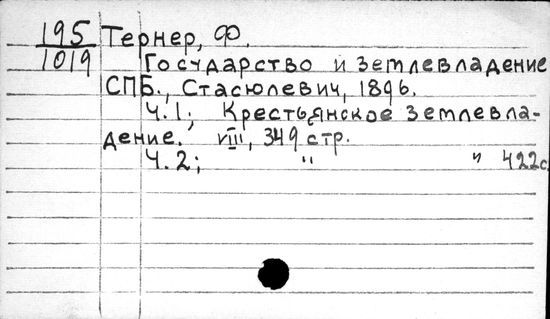 195 Тернер, Ф.
1019 Государство и Землевладение
СПБ., Стасюлевич, 1896.
Ч.1; Крестьянское Землевла-
дение. VIII, 349 стр.
Ч.2; " " 422с.